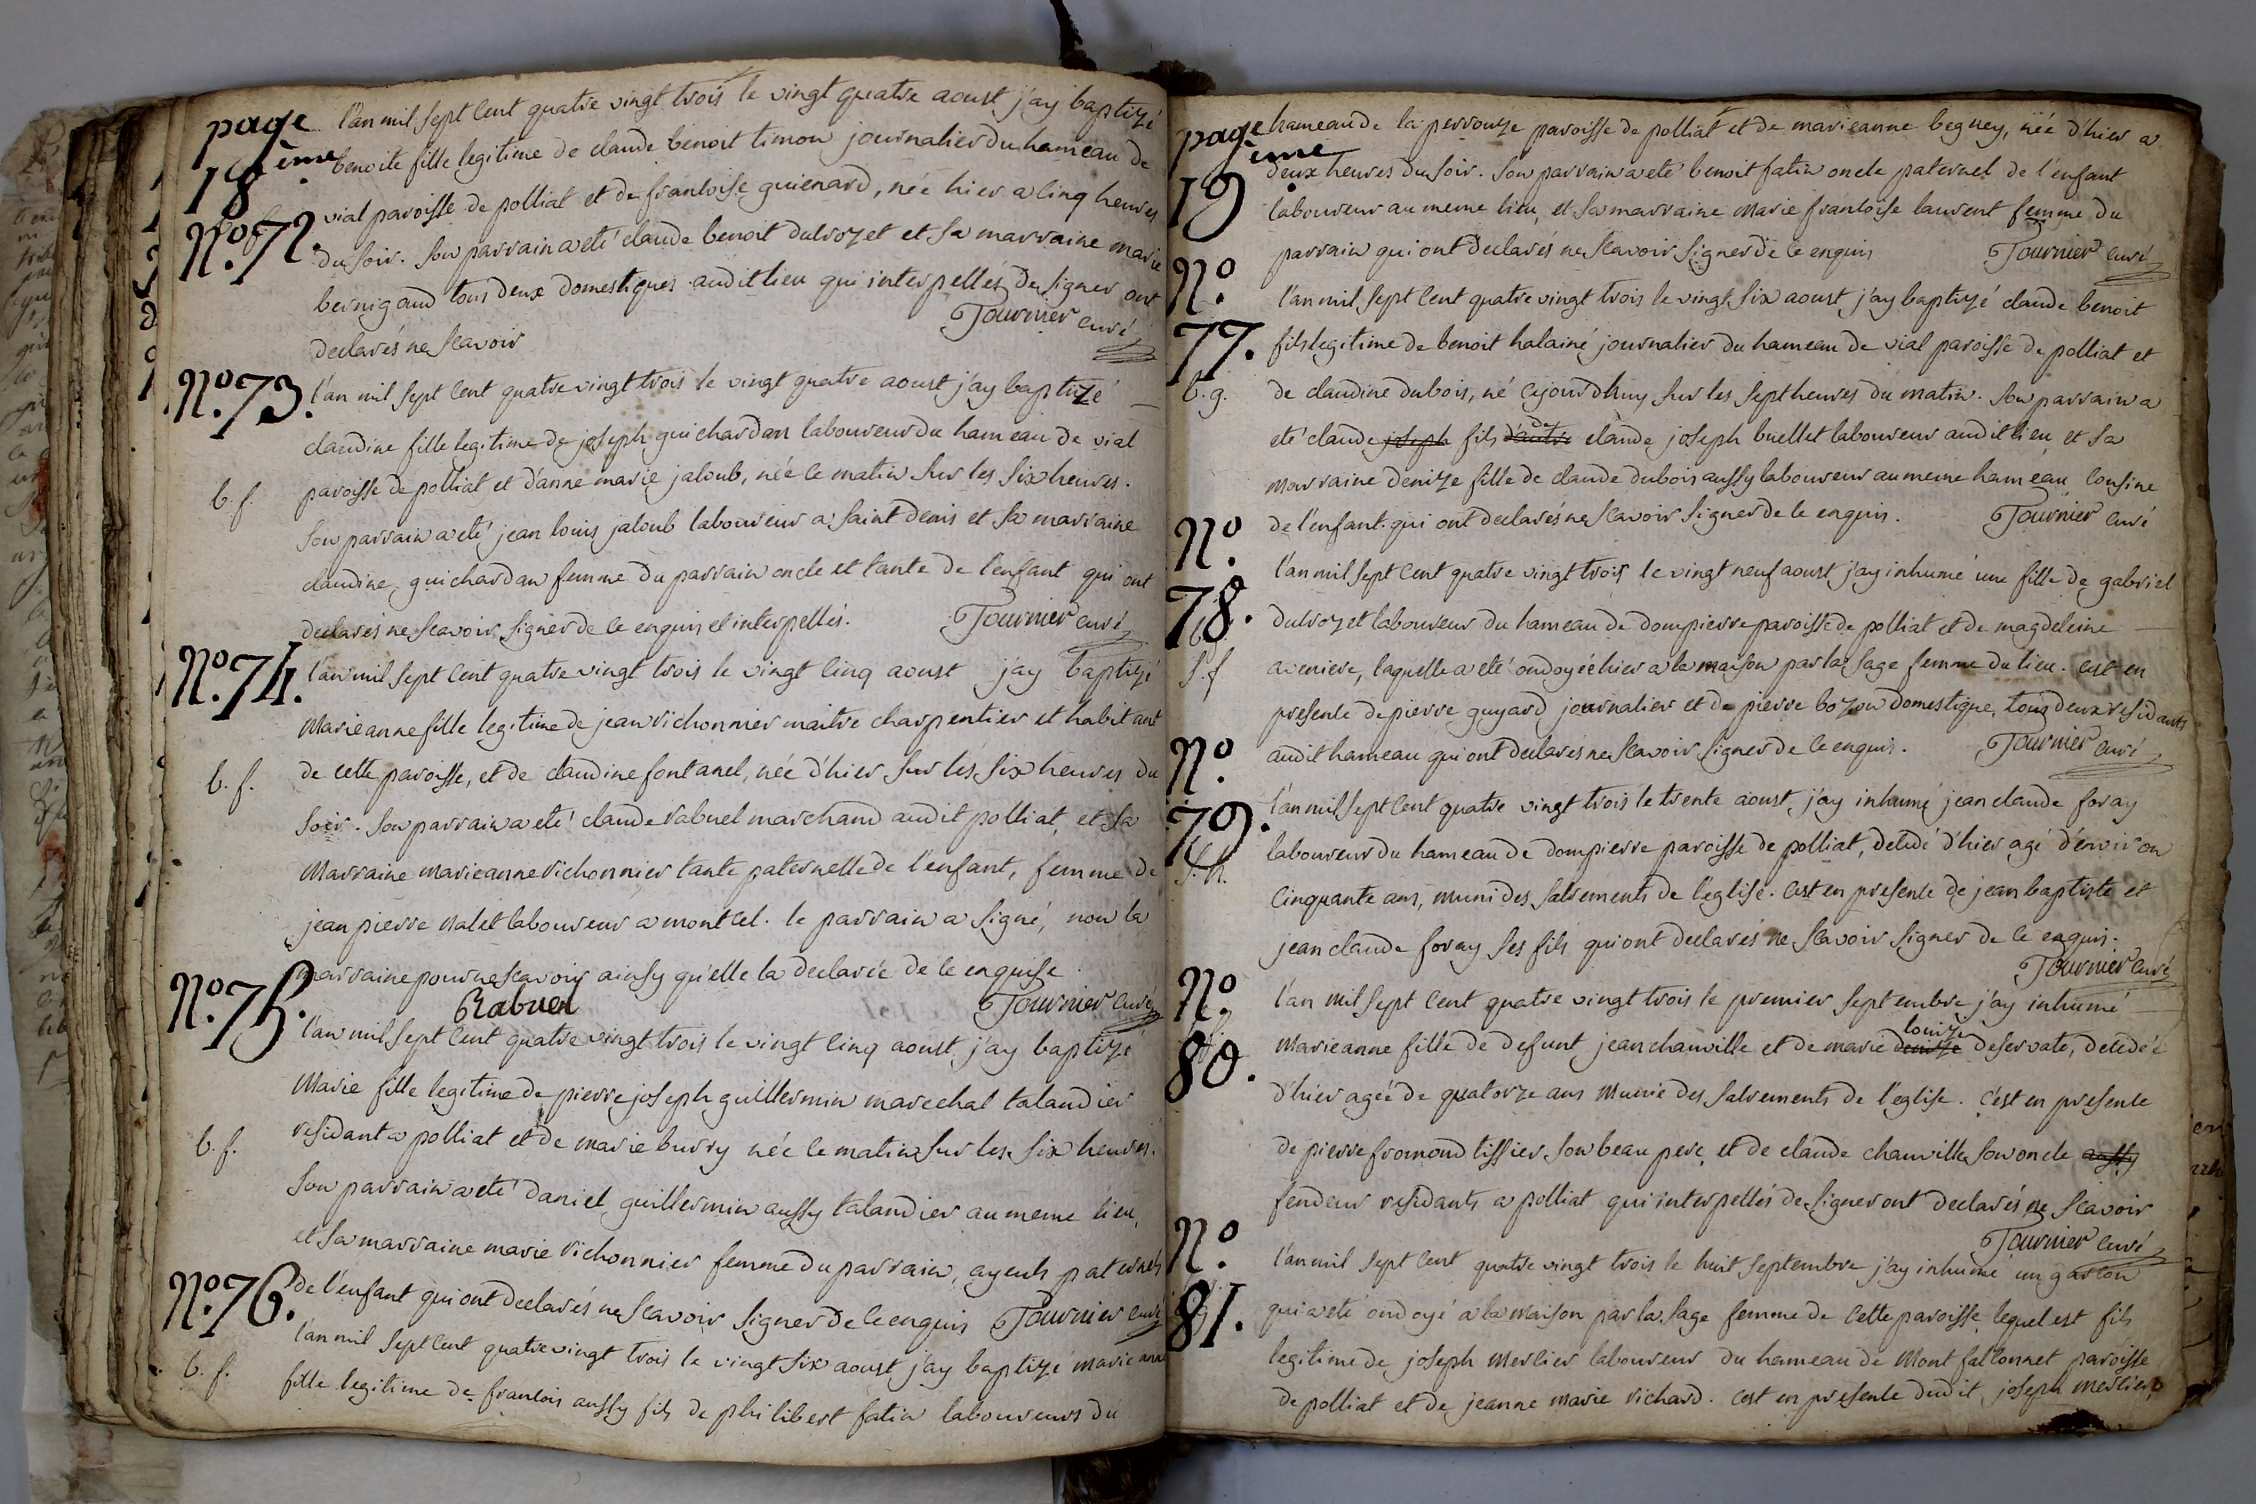 page 18ème
l'an mil sept cent quatre vingt trois le vingt quatre aoust j'ay baptizé
benoite fille legitime de claude benoit timon journalier du hameau de
N.º 72.
vial paroisse de polliat et de francoise guienard, née hier a cinq heures
du soir. son parrain a eté claude benoit dulrozet et sa marraine marie
bernigaud tous deux domestiques audit lieu qui interpellés de signer ont
declarés ne scavoir Tournier curé
N.º 73.
l'an mil sept cent quatre vingt trois le vingt quatre aoust j'ay baptizé
claudine fille legitime de joseph guichardan laboureur du hameau de vial
b. f.
paroisse de polliat et d'anne marie jaloub, née ce matin sur les six heures.
son parrain a eté jean louis jaloub laboureur a saint denis et sa marraine
claudine guichardan femme du parrain oncle et tante de l'enfant qui ont
declarés ne scavoir signer de ce enquis et interpellés. Tournier curé
N.º 74.
l'an mil sept cent quatre vingt trois le vingt cinq aoust j'ay baptizé
Marieanne fille legitime de jean vichonnier maitre charpentier et habitant
b. f.
de cette paroisse, et de claudine fontanel, née d'hier sur les six heures du
soir. son parrain a eté claude rabuel marchand audit polliat, et sa
Marraine marieanne vichonnier tante paternelle de l'enfant, femme de
jean pierre valet laboureur a montcel. le parrain a signé, non la
marraine pour ne scavoir ainsy qu'elle la declarée de ce enquise.
Rabuel Tournier curé
N.º 75.
l'an mil sept cent quatre vingt trois le vingt cinq aoust j'ay baptizé
Marie fille legitime de pierre joseph guillermin marechal talandier
b. f.
residant a polliat et de marie burry née ce matin sur les six heures.
son parrain a eté daniel guillermin aussy talandier au meme lieu,
et sa marraine marie vichonnier femme du parrain, ayeuls paternels
de l'enfant qui ont declarés ne scavoir signer de ce enquis Tournier curé
N.º 76.
l'an mil sept cent quatre vingt trois le vingt six aoust j'ay baptizé marie anne
b. f.
fille legitime de francois aussy fils de philibert fatin laboureurs du
page 19ème
hameau de la perrouze paroisse de polliat et de marieanne begney, née d'hier a
deux heures du soir. son parrain a eté benoit fatin oncle paternel de l'enfant
laboureur au meme lieu, et sa marraine Marie francoise laurent femme du
parrain qui ont declarés ne scavoir signer de ce enquis Tournier curé
N.º 77.
l'an mil sept cent quatre vingt trois le vingt six aoust j'ay baptizé claude benoit
fils legitime de benoit halainé journalier du hameau de vial paroisse de polliat et
b. g.
de claudine dubois, né cejourdhuy sur les sept heures du matin. son parrain a
eté claude joseph fils d'autre de claude joseph buellet laboureur audit lieu, et sa
marraine denize fille de claude dubois aussy laboureur au meme hameau, cousine
de l'enfant. qui ont declarés ne scavoir signer de ce enquis. Tournier curé
N.º 78.
l'an mil sept cent quatre vingt trois le vingt neuf aoust j'ay inhumé une fille de gabriel
dulrozet laboureur du hameau de dompierre paroisse de polliat et de magdeleine
S. f
aveniere, laquelle a eté ondoyée hier a la maison par la sage femme du lieu. cest en
presence de pierre guyard journalier et de pierre bozon domestique, tous deux residants
audit hameau qui ont declarés ne scavoir signer de ce enquis. Tournier curé
N.º 79.
l'an mil sept cent quatre vingt trois le trente aoust, j'ay inhumé jean claude foray
laboureur du hameau de dompierre paroisse de polliat, decedé d'hier agé d'environ
S. h.
cinquante ans, muni des sacrements de l'eglise. cest en presence de jean baptiste et
jean claude foray ses fils qui ont declarés ne scavoir signer de ce enquis.
Tournier curé
N.º 80.
l'an mil sept cent quatre vingt trois le premier septembre j'ay inhumé
Marieanne fille de defunt jean chanville et de marie denisze louize deservate, decedée
d'hier agée de quatorze ans munie des sacrements de l'eglise. c'est en presence
de pierre fromond tissier son beau pere, et de claude chanville son oncle aussy
fendeur residants a polliat qui interpellés de signer ont declarés ne scavoir
Tournier curé
N.º 81.
l'an mil sept cent quatre vingt trois le huit septembre j'ay inhumé un garcon
qui a eté ondoyé a la maison par la sage femme de cette paroisse, lequel est fils
legitime de joseph merlier laboureur du hameau de Mont falconnet paroisse
de polliat et de jeanne marie richard. cest en presence dudit joseph merlier,